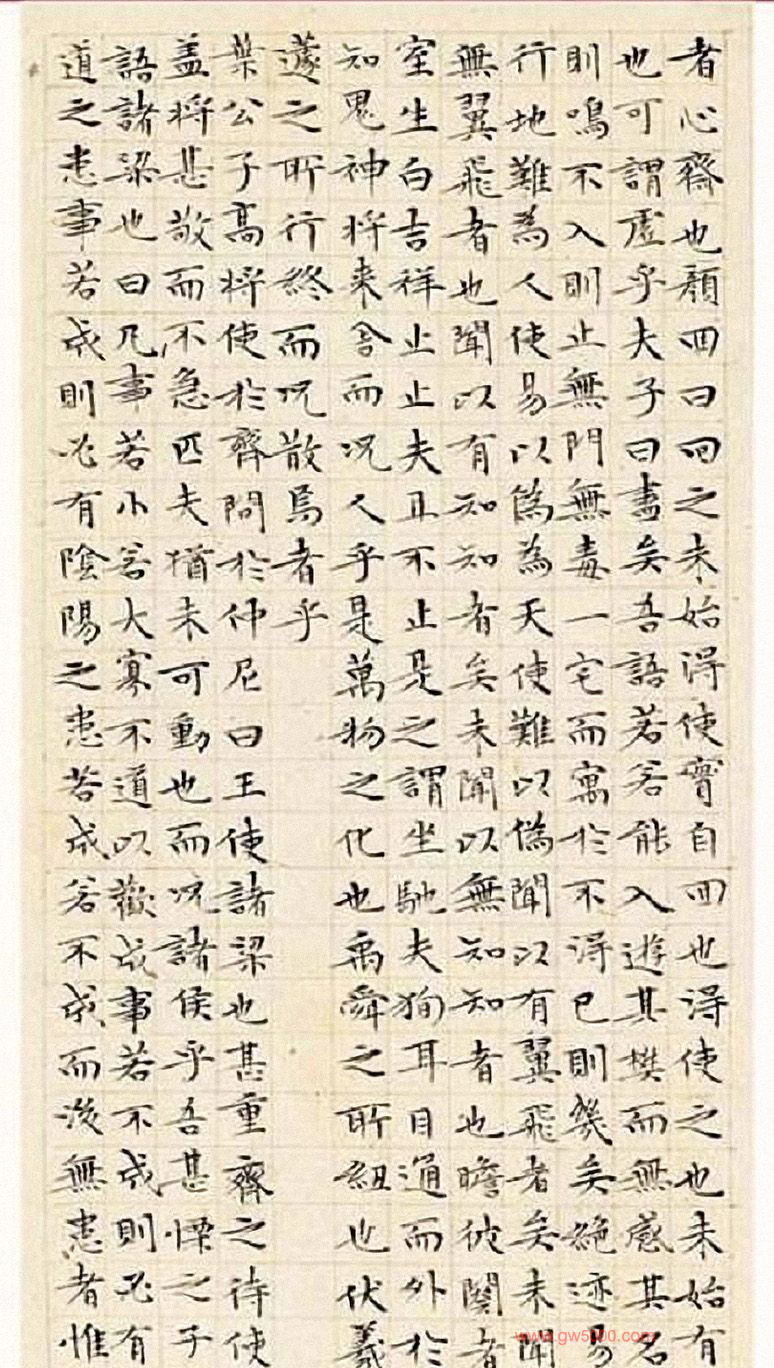 者心齋也顏回曰回之未始得使實自回也得使之也未始有
也可謂虛乎夫子曰盡矣吾語若若能入遊其樊而無感其名
則鳴不入則止無門無毒一宅而寓於不得已則幾矣絕迹易
行地難為人使易以偽為天使難以偽聞以有翼飛者矣未聞
無翼飛者也聞以有知知者矣未聞以無知知者也瞻彼闋者
室生白吉祥止止夫且不止是之謂坐馳夫徇耳目通而外於
知鬼神將来舍而況人乎是萬物之化也禹舜之所紐也伏羲
蘧之所行終而況散焉者乎
葉公子高將使於齊問於仲尼曰王使諸梁也甚重齊之待使
盖將甚敬而不急匹夫猶未可動也而況諸侯乎吾甚慄之子
語諸梁也曰凡事若小若大寡不道以歡成事若不成則必有
道之患事若成則必有陰陽之患若成若不成而後無患者惟
www.gw5000.com